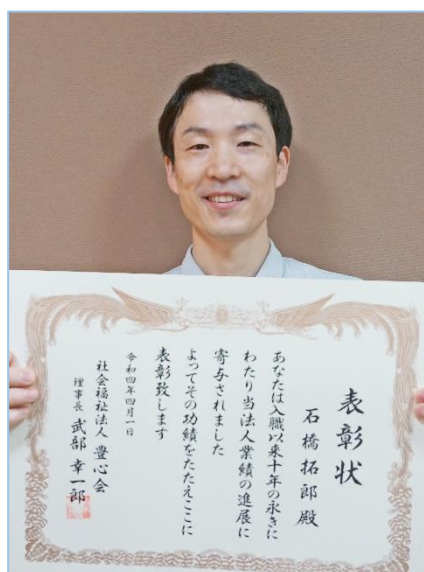 表彰状
石橋拓郎殿
あなたは入職以来十年の永きに
わたり当法人業績の進展に
寄与されました
よってその功績をたたえここに
表彰致します
令和四年四月一日
社会福祉法人 豊心会
理事長 武部幸一郎